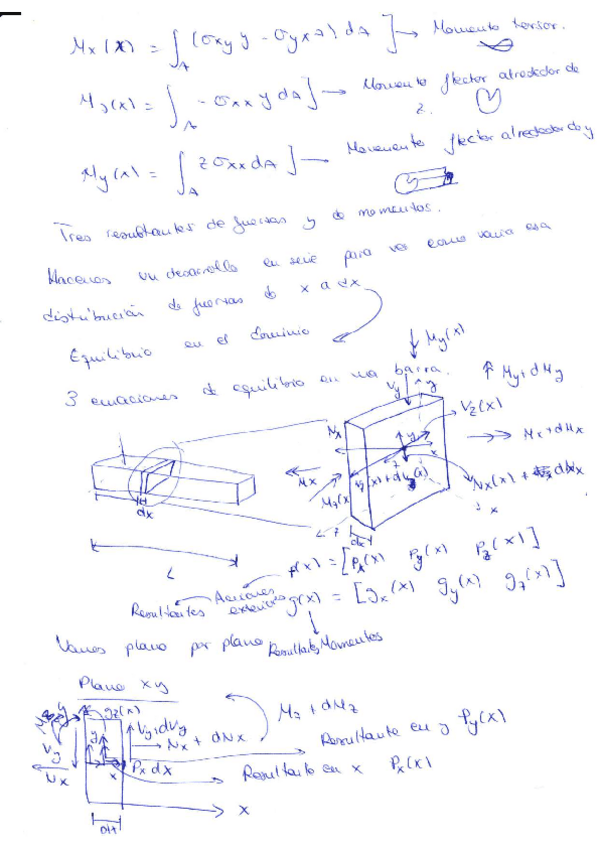 Mx(x) = ∫A (σxy y - σyx z) dA] → Momento torsor.
Mz(x) = ∫A - σxx y dA] → Momento flector alrededor de z.
My(x) = ∫A z σxx dA] → Momento flector alrededor de y
Tres resultantes de fuerzas y de momentos.
Hacemos un desarrollo en serie para ver como varia esa
distribución de fuerzas de x a dx
Equilibrio en el dominio
3 ecuaciones de equilibrio en una barra.
My(x)
My + dMy
Vy
y
Vz(x)
Nx
Mx + dMx
Mx
Mz(x)
Nx(x) + dNx
x
z
dx
dx
L
p(x) = [Px(x) Py(x) Pz(x)]
Resultantes Acciones exteriores
g(x) = [gx(x) gy(x) gz(x)]
Vamos plano por plano
Resultantes Momentos
Plano xy
Mz + dMz
gz(x)
Vy+dVy
Nx + dNx
Resultante en y Py(x)
Vy
y
Nx
x
Px dx
Resultante en x Px(x)
x